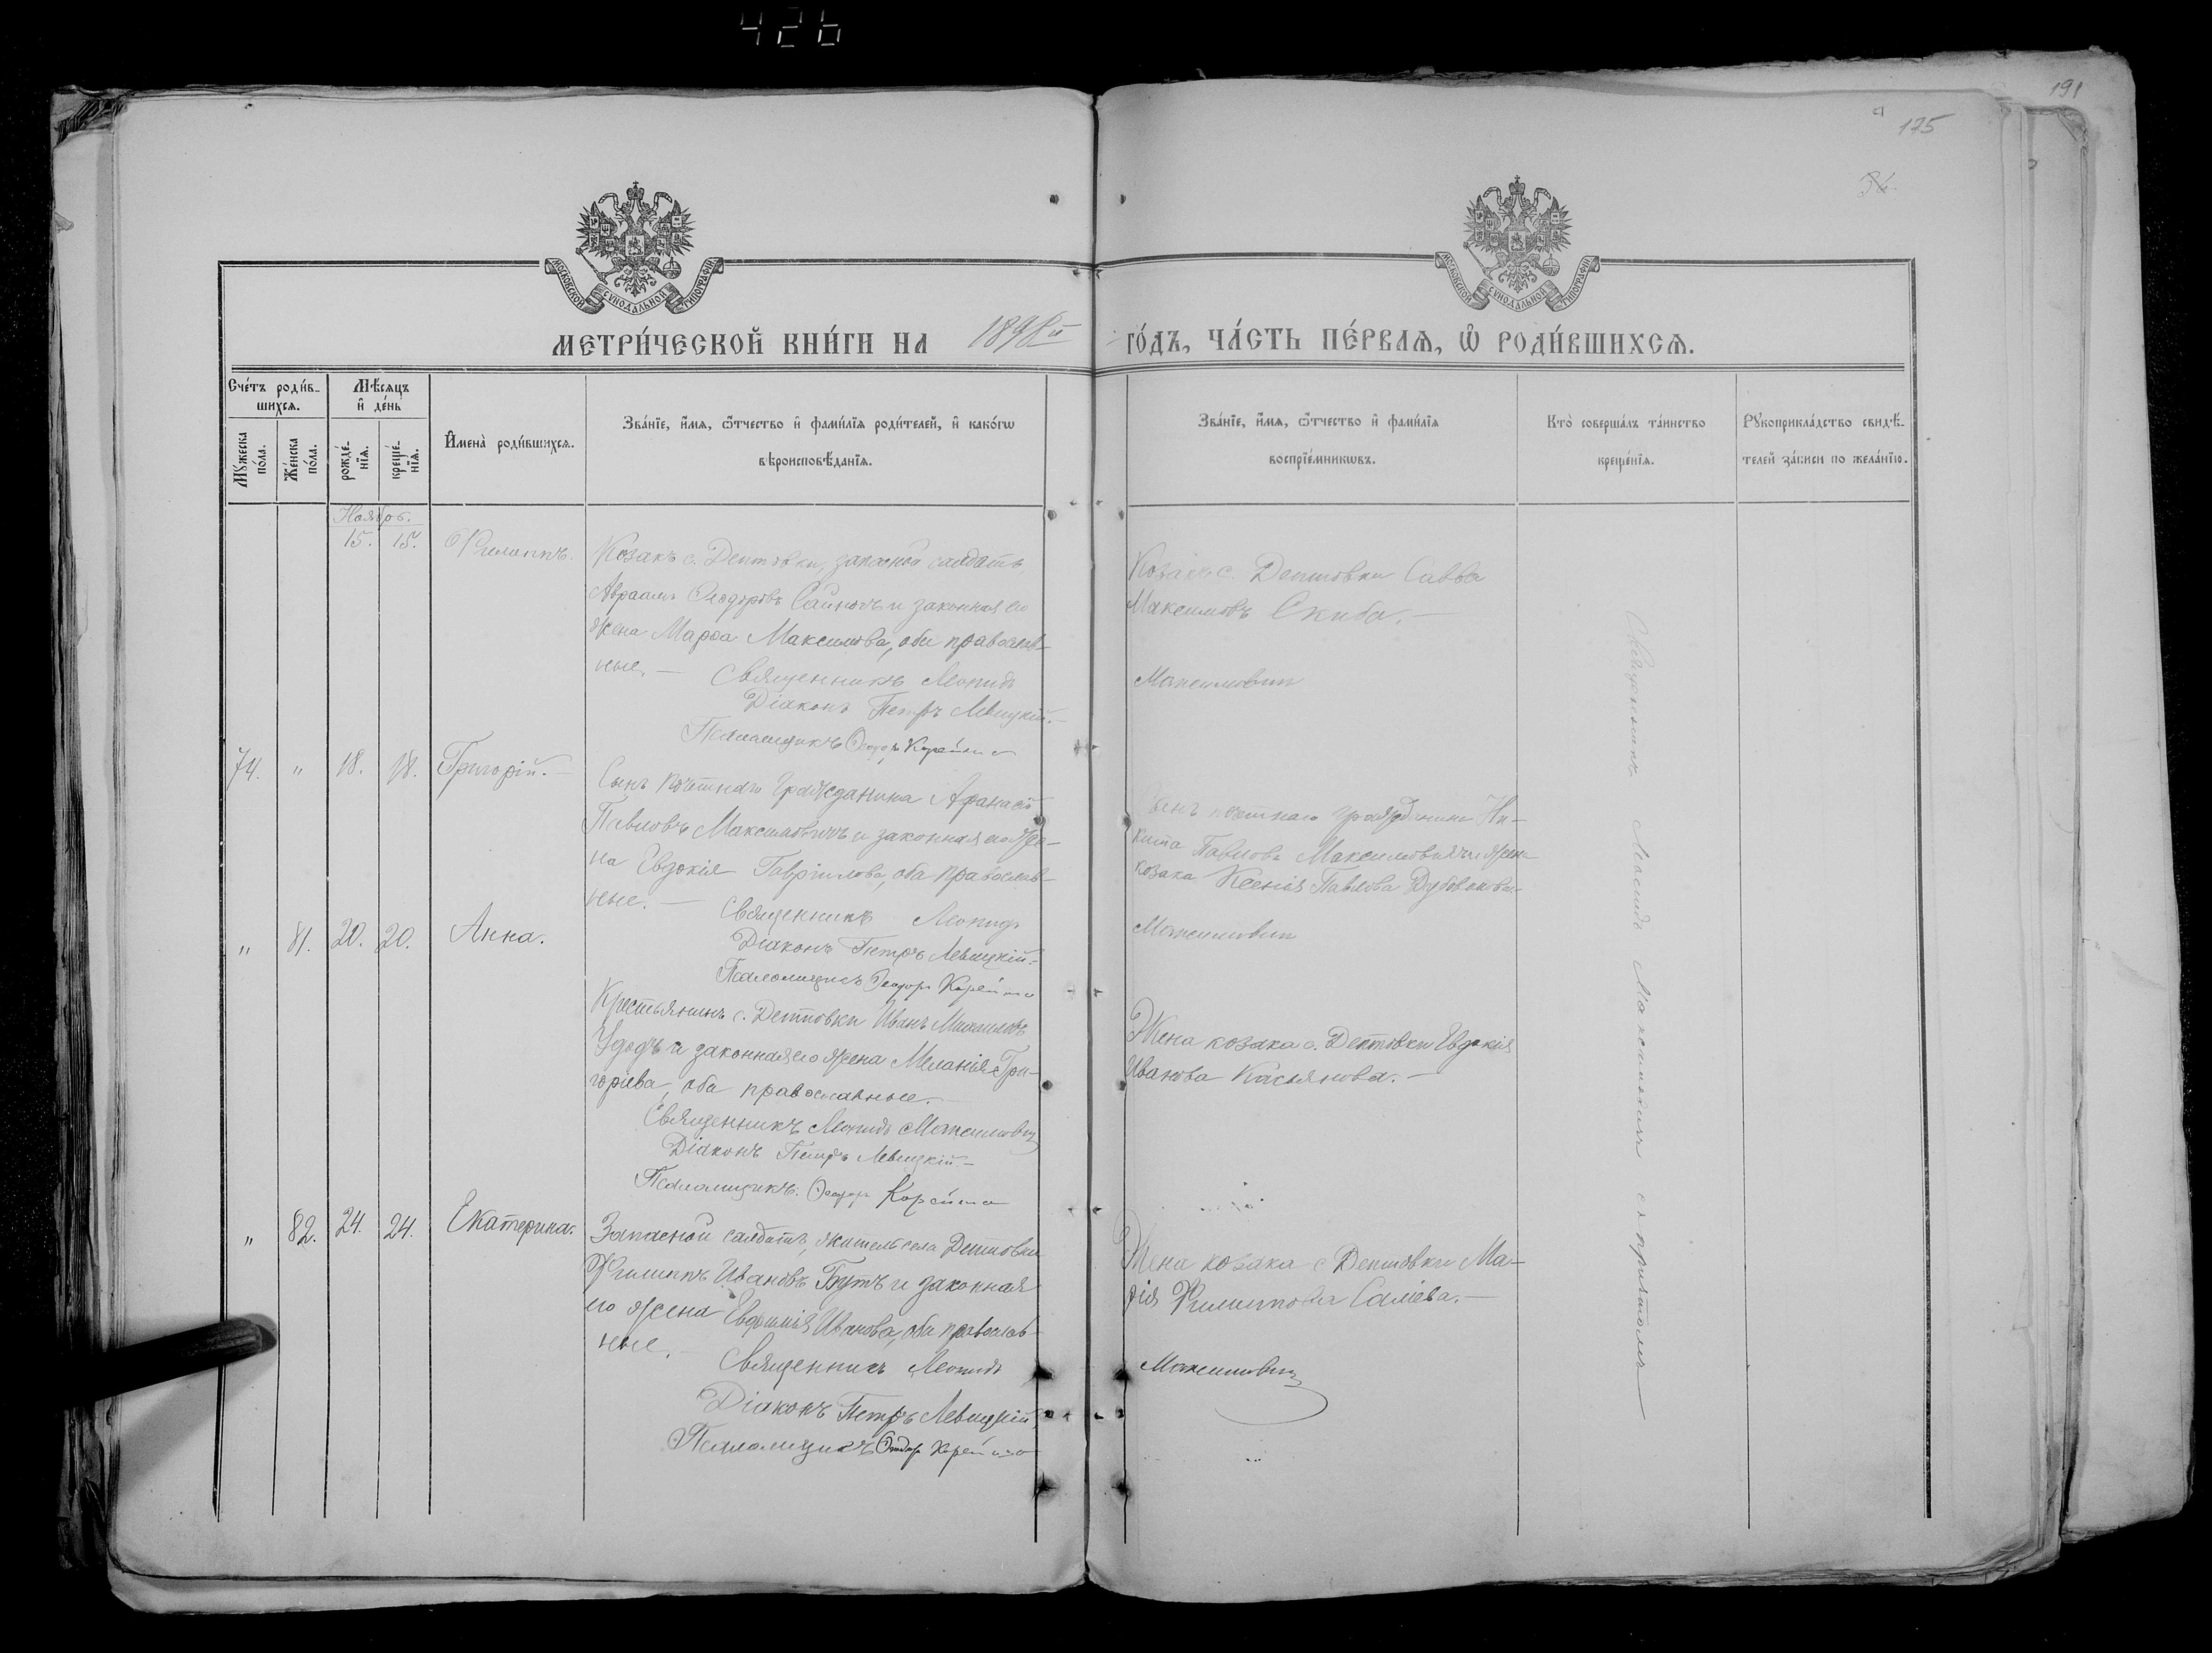 426
191
175
МОСКОВСКОЙ СУНОДАЛЬНОЙ ТИПОГРАФІИ
МОСКОВСКОЙ СУНОДАЛЬНОЙ ТИПОГРАФІИ
МЕТРИ́ЧЕСКОЙ КНИ́ГИ НА 1898й ГО́ДЪ, ЧА́СТЬ ПЕ́РВАѦ, Ѡ҆ РОДИ́ВШИХСѦ.
Сче́тъ роди́в-
шихсѧ.
Мѣ́сѧцъ
и҆ де́нь
Мꙋ́жеска по́ла.
Же́нска по́ла.
рожде́-нїѧ.
креще́-нїѧ.
И҆мена̀ роди́вшихсѧ.
Зва́нїе, и҆́мѧ, ѻ҆́тчество и҆ фами́лїѧ роди́телей, и҆ како́гѡ
вѣроисповѣ́данїѧ.
Зва́нїе, и҆́мѧ, ѻ҆́тчество и҆ фами́лїѧ
воспрїе́мникѡвъ.
Кто̀ соверша́лъ та́инство
креще́нїѧ.
Рꙋкоприкла́дство свидѣ́-
телей за́писи по жела́нїю.
Ноябрь.
15. 15. Филиппъ.
Козакъ с. Дептовки, запасной салдатъ,
Авраамъ Ѳеодоровъ и законная его
жена Марѳа Максимова, оба православ-
ные. —
Священникъ Леонидъ Максимович
Діаконъ Петръ Левицкій. —
Псаломщикъ Ѳеодоръ Корейша
Козакъ с. Дептовки Савва
Максимовъ Скиба. —
74. " 18. 18. Григорій. —
Сынъ почетнаго гражданина Афанасій
Павловъ Максимовичъ и законная его же-
на Евдокія Гавріилова, оба православ-
ные. —
Священникъ Леонидъ Максимович
Діаконъ Петръ Левицкій. —
Псаломщикъ Ѳеодоръ Корейша
Сынъ почетнаго гражданина Ни-
кита Павловъ Максимовичъ и жена
козака Ксенія Павлова
" 81. 20. 20. Анна.
Крестьянинъ с. Дептовки Иванъ Михаиловъ
Удодъ и законная его жена Меланія Гри-
горіева, оба православные. —
Священникъ Леонидъ Максимович
Діаконъ Петръ Левицкій. —
Псаломщикъ Ѳеодоръ Корейша
Жена козака с. Дептовки Евдокія
Иванова Касьянова. —
" 82. 24. 24. Екатерина.
Запасной салдатъ, житель села Дептовки
Филиппъ Ивановъ Бутъ и законная
его жена Евфимія Иванова, оба православ-
ные. —
Священникъ Леонидъ Максимович
Діаконъ Петръ Левицкій,
Псаломщикъ Ѳеодоръ Корейша
Жена козака с Дептовки Ма-
рія Филиппова —
Священникъ Леонидъ Максимович с причтомъ